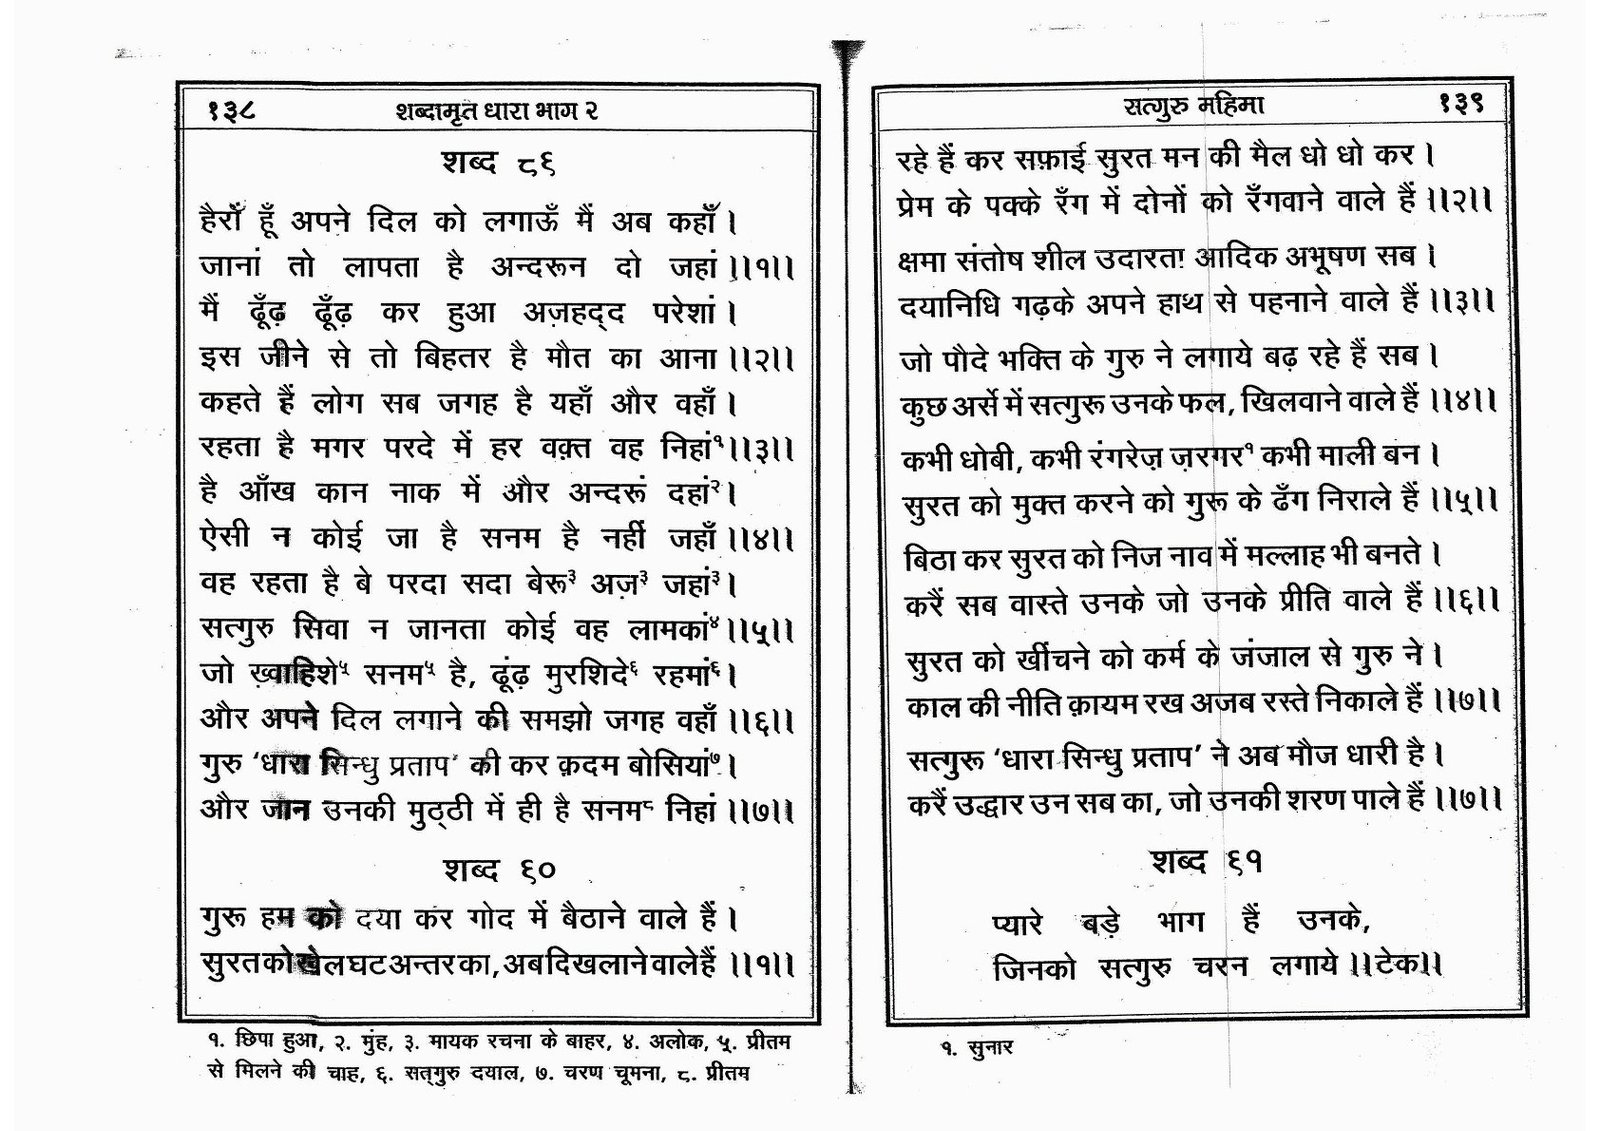 १३८ शब्दामृत धारा भाग २
शब्द ८६
हैराँ हूँ अपने दिल को लगाऊँ मैं अब कहाँ ।
जानां तो लापता है अन्दरून दो जहां ।।१।।
मैं ढूँढ़ ढूँढ़ कर हुआ अज़हद्द परेशां ।
इस जीने से तो बिहतर है मौत का आना ।।२।।
कहते हैं लोग सब जगह है यहाँ और वहाँ ।
रहता है मगर परदे में हर वक़्त वह निहां१।।३।।
है आँख कान नाक में और अन्दरूं दहां२।
ऐसी न कोई जा है सनम है नहीं जहाँ ।।४।।
वह रहता है बे परदा सदा बेरू३ अज़३ जहां३।
सत्गुरु सिवा न जानता कोई वह लामकां४।।५।।
जो ख़्वाहिशे५ सनम५ है, ढूंढ़ मुरशिदे६ रहमां६।
और अपने दिल लगाने की समझो जगह वहाँ ।।६।।
गुरु ‘धारा सिन्धु प्रताप’ की कर क़दम बोसियां७।
और जान उनकी मुठ्ठी में ही है सनम८ निहां ।।७।।
शब्द ६०
गुरू हम को दया कर गोद में बैठाने वाले हैं ।
सुरत को खेल घट अन्तर का, अब दिखलाने वाले हैं ।।१।।
१. छिपा हुआ, २. मुंह, ३. मायक रचना के बाहर, ४. अलोक, ५. प्रीतम
से मिलने की चाह, ६. सत्गुरु दयाल, ७. चरण चूमना, ८. प्रीतम
सत्गुरु महिमा १३९
रहे हैं कर सफ़ाई सुरत मन की मैल धो धो कर ।
प्रेम के पक्के रँग में दोनों को रँगवाने वाले हैं ।।२।।
क्षमा संतोष शील उदारता आदिक अभूषण सब ।
दयानिधि गढ़के अपने हाथ से पहनाने वाले हैं ।।३।।
जो पौदे भक्ति के गुरु ने लगाये बढ़ रहे हैं सब ।
कुछ अर्से में सत्गुरू उनके फल, खिलवाने वाले हैं ।।४।।
कभी धोबी, कभी रंगरेज़ ज़रगर१ कभी माली बन ।
सुरत को मुक्त करने को गुरू के ढँग निराले हैं ।।५।।
बिठा कर सुरत को निज नाव में मल्लाह भी बनते ।
करैं सब वास्ते उनके जो उनके प्रीति वाले हैं ।।६।।
सुरत को खींचने को कर्म के जंजाल से गुरु ने ।
काल की नीति क़ायम रख अजब रस्ते निकाले हैं ।।७।।
सत्गुरू ‘धारा सिन्धु प्रताप’ ने अब मौज धारी है ।
करैं उद्धार उन सब का, जो उनकी शरण पाले हैं ।।७।।
शब्द ६१
प्यारे बड़े भाग हैं उनके,
जिनको सत्गुरु चरन लगाये ।।टेक।।
१. सुनार